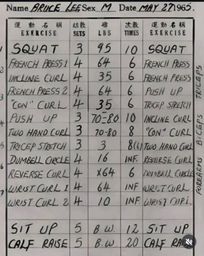 NAME BRUCE LEE SEX M DATE MAY 27 1965
運動名稱 組數 磅 次數 運動名稱
EXERCISE SETS LBS TIMES EXERCISE
SQUAT 3 95 10 SQUAT
FRENCH PRESS 1 4 64 6 FRENCH PRESS
INCLINE CURL 4 35 6 FRENCH PRESS
FRENCH PRESS 2 4 64 6 PUSH UP
"CON" CURL 4 35 6 TRICEP STRETCH
PUSH UP 3 70-80 10 INCLINE CURL
TWO HAND CURL 3 70-80 8 "CON" CURL
TRICEP STRETCH 3 3 8 TWO HAND CURL
DUMBELL CIRCLE 4 16 INF. REVERSE CURL
REVERSE CURL 4 64 6 DUMBELL CIRCLE
WRIST CURL 1 4 64 INF. WRIST CURL
WRIST CURL 2 4 10 INF. WRIST CURL
SIT UP 5 B.W. 12 SIT UP
CALF RAISE 5 B.W 20 CALF RAISE
TRICEPS
BICEPS
FOREARMS